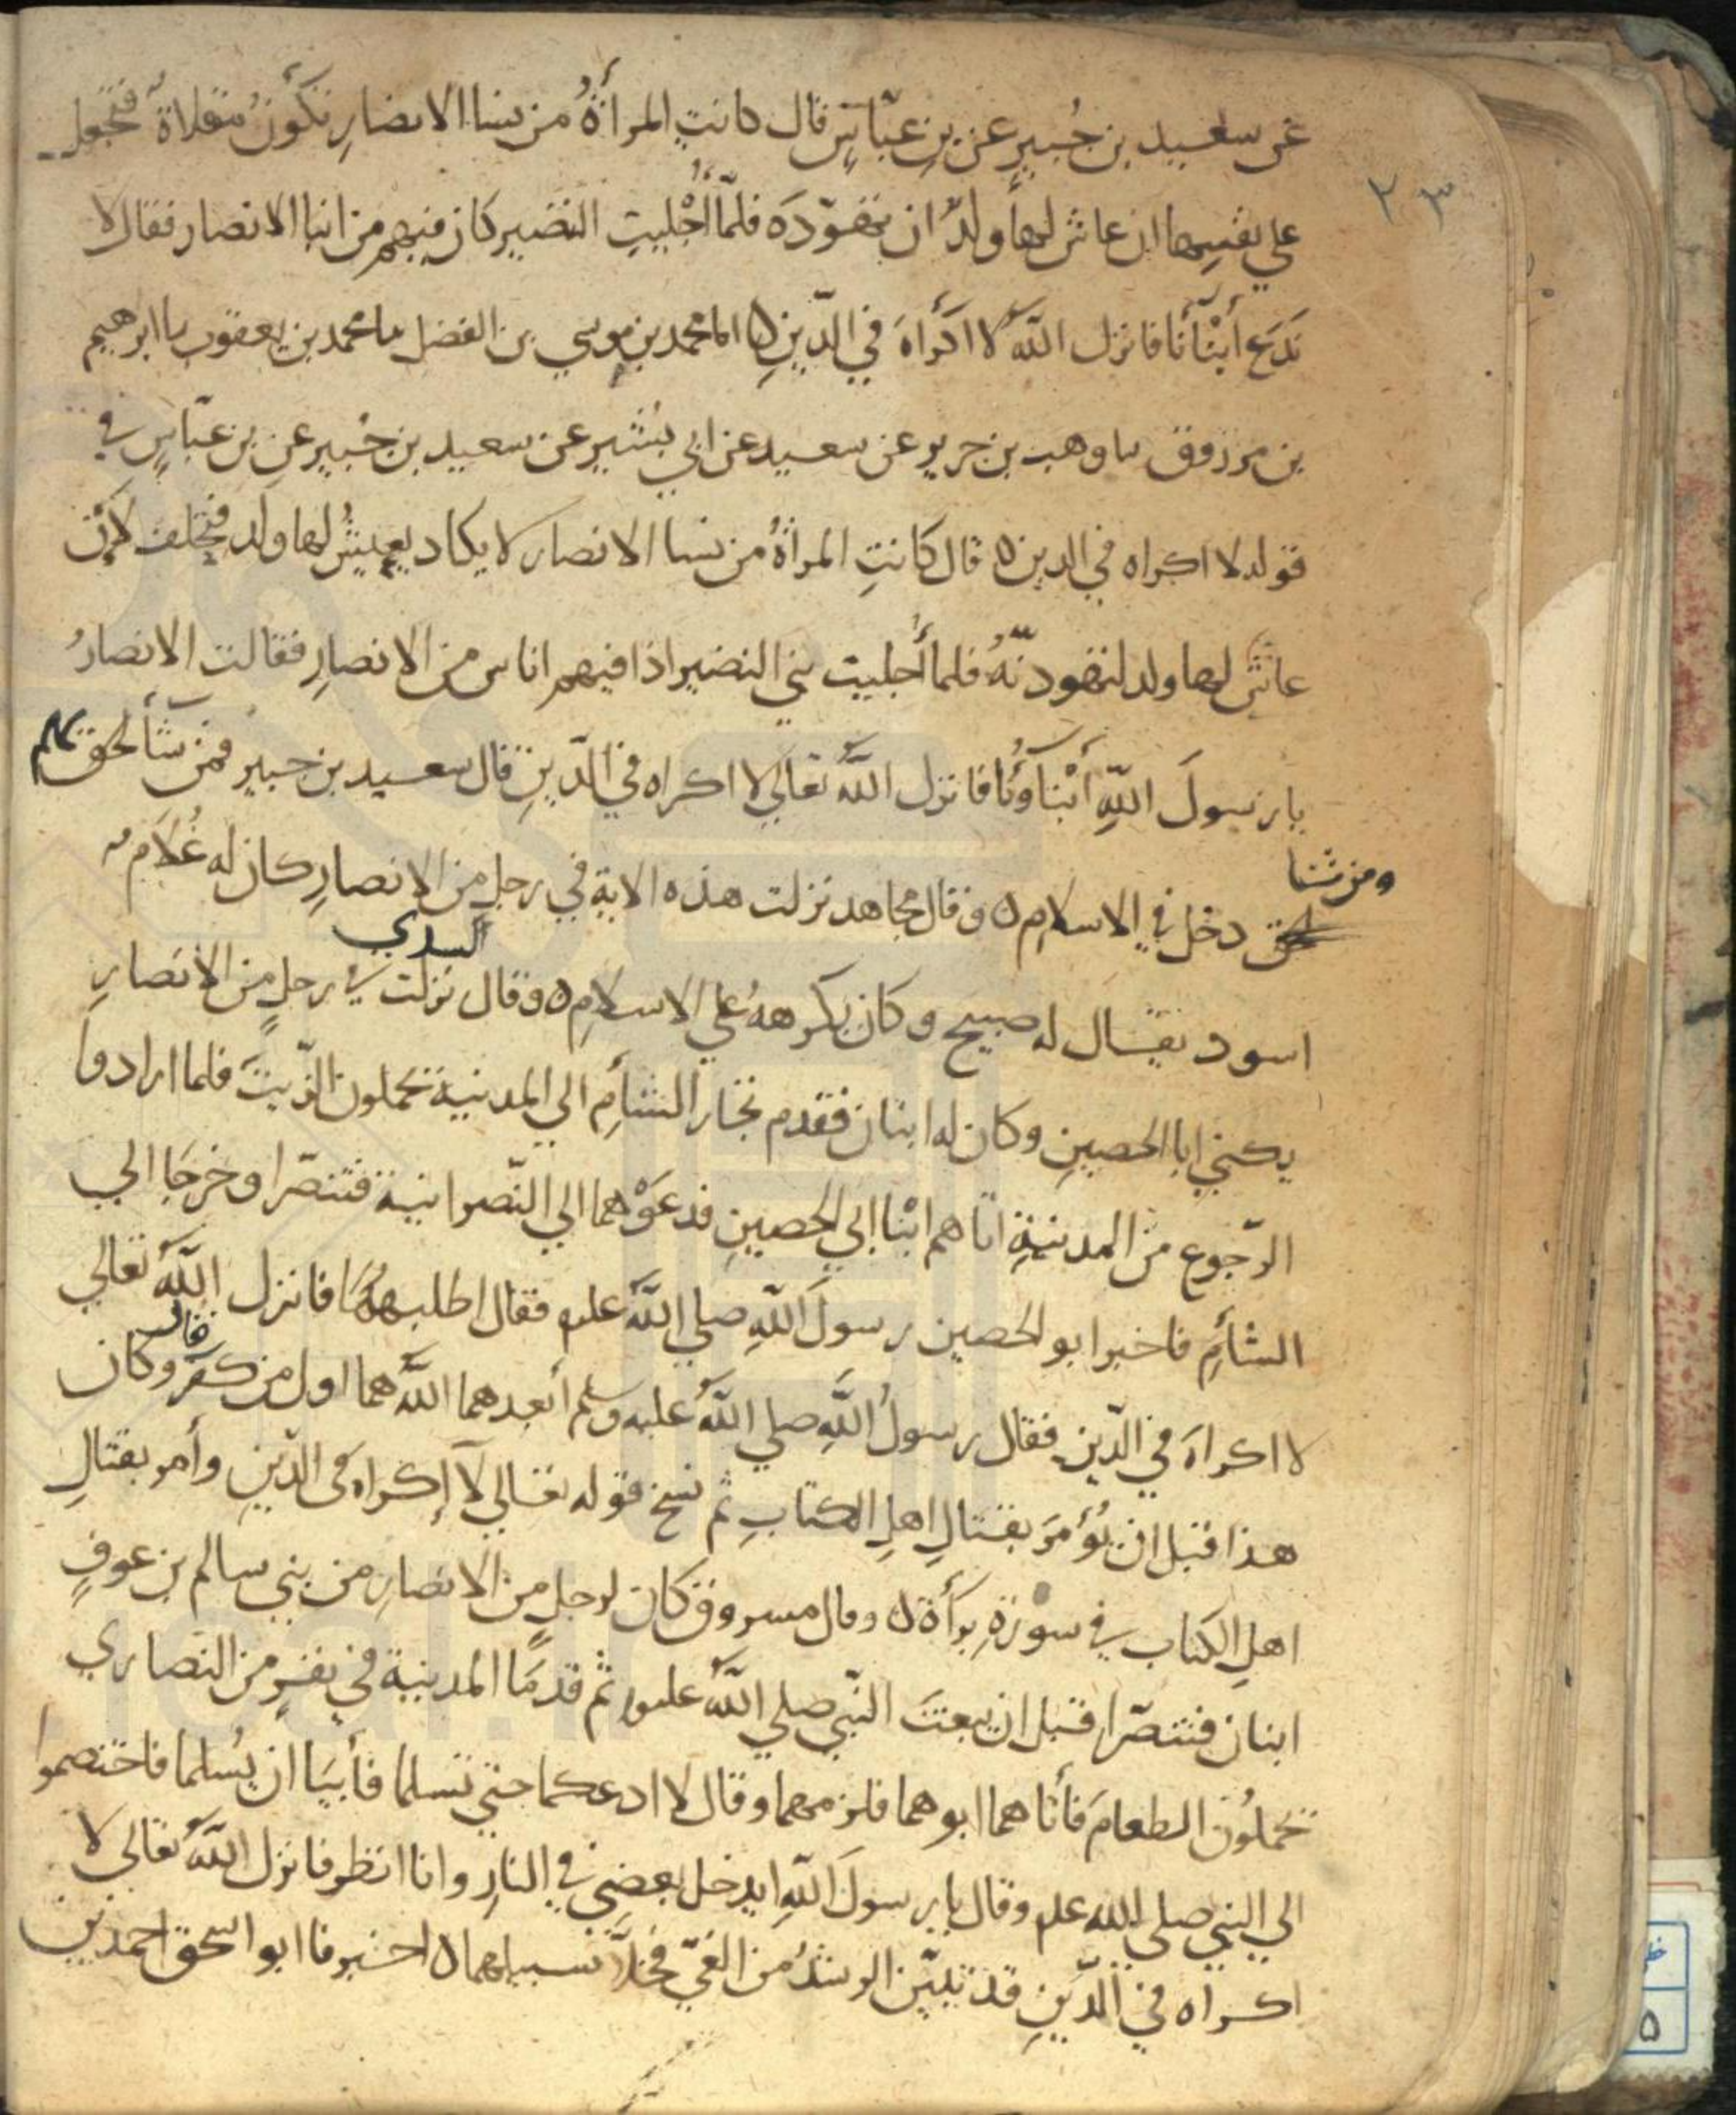 ٢٣
عن سعيد بن جُبيرٍ عن بنِ عبّاسٍ قال كانتِ المرأةُ من نسا الانصارِ تكُونُ مقلاةً فتجعل
علي نفسِها ان عاش لها ولدٌ ان تهوّدَه فلمّا أُجْليتِ النضير كان فيهم من ابنا الانصار فقالالا
نَدَع أبْنَآنَا فانزل اللهُ لا اكْراهَ في الدّينِ ه انا محمد بن موسي بن الفضل سا محمد بن يعقوب سا ابرهيم
بن مرزوق سا وهب بن جرير عن سعيد عن ابي بشير عن سعيد بن جُبير عن بن عبّاسٍ في
قوله لا اكراه في الدين ه قال كانتِ المراةُ من نسا الانصار لا يكاد يعيشُ لها ولد فتحلف لإن
عاش لها ولد لتهودنّهُ فلما أُجليت بني النضير اذا فيهم اناس من الانصارِ فقالت الانصارُ
يا رسولَ اللهِ أبْناؤُنا فانزل اللهُ تعالي لا اكراه في الدّينِ قال سعيد بن جبير فمن شآ لحق بهم
ومن شا
لحق دخل في الاسلامِ ه وقال مجاهد نزلت هذه الاية في رجلٍ من الانصارِ كان له غُلامٌ
اسود يقال له صبيح وكان يكرهه علي الاسلامِ ه وقال السدي نزلت في رجلٍ من الانصارِ
يكني ابا الحصينِ وكان له ابنان فقدم تجار الشأمِ الي المدينة يحملون الزّيتَ فلما ارادوا
الرّجوع من المدينةِ اتاهم ابْنا ابي الحصينِ فدعَوْهما الي النّصرانية فتنصّرا وخرجَا الي
الشأمِ فاخبر ابو الحصين رسولَ اللهِ صلي اللهُ عليه فقال اطلبهُمَا فانزل اللهُ تعالي
لا اكراهَ في الدّينِ فقال رسولُ اللهِ صلي اللهُ عليه وسلم أبعدهما اللهُ هما اول من كفر قال وكان
هذا قبل ان يُؤمَرَ بقتالِ اهلِ الكتابِ ثم نسخ قوله تعالي لآ إكراه في الدّينِ وأمر بقتالِ
اهلِ الكتاب في سورةِ برأة ه وقال مسروق كان لرجلٍ من الانصارِ من بني سالم بن عوفٍ
ابنان فتنصّرا قبل ان يبعثَ النّبي صلي اللهُ عليه ثم قدمَا المدينة في نفرٍ من النصاري
يحملُون الطعامَ فأتاهما ابوهما فلزمهما وقال لا ادعكما حتي تسلما فأبيَا ان يُسلما فاختصموا
الي النبي صلي الله عليه وقال يا رسولَ اللهِ ايدخل بعضي في النارِ وانا انظر فانزل اللهُ تعالي لا
اكراه في الدّينِ قد تبيّن الرشدُ من الغيّ فخلّا سبيلهما ه اخبرنا ابو اسحق احمد بن